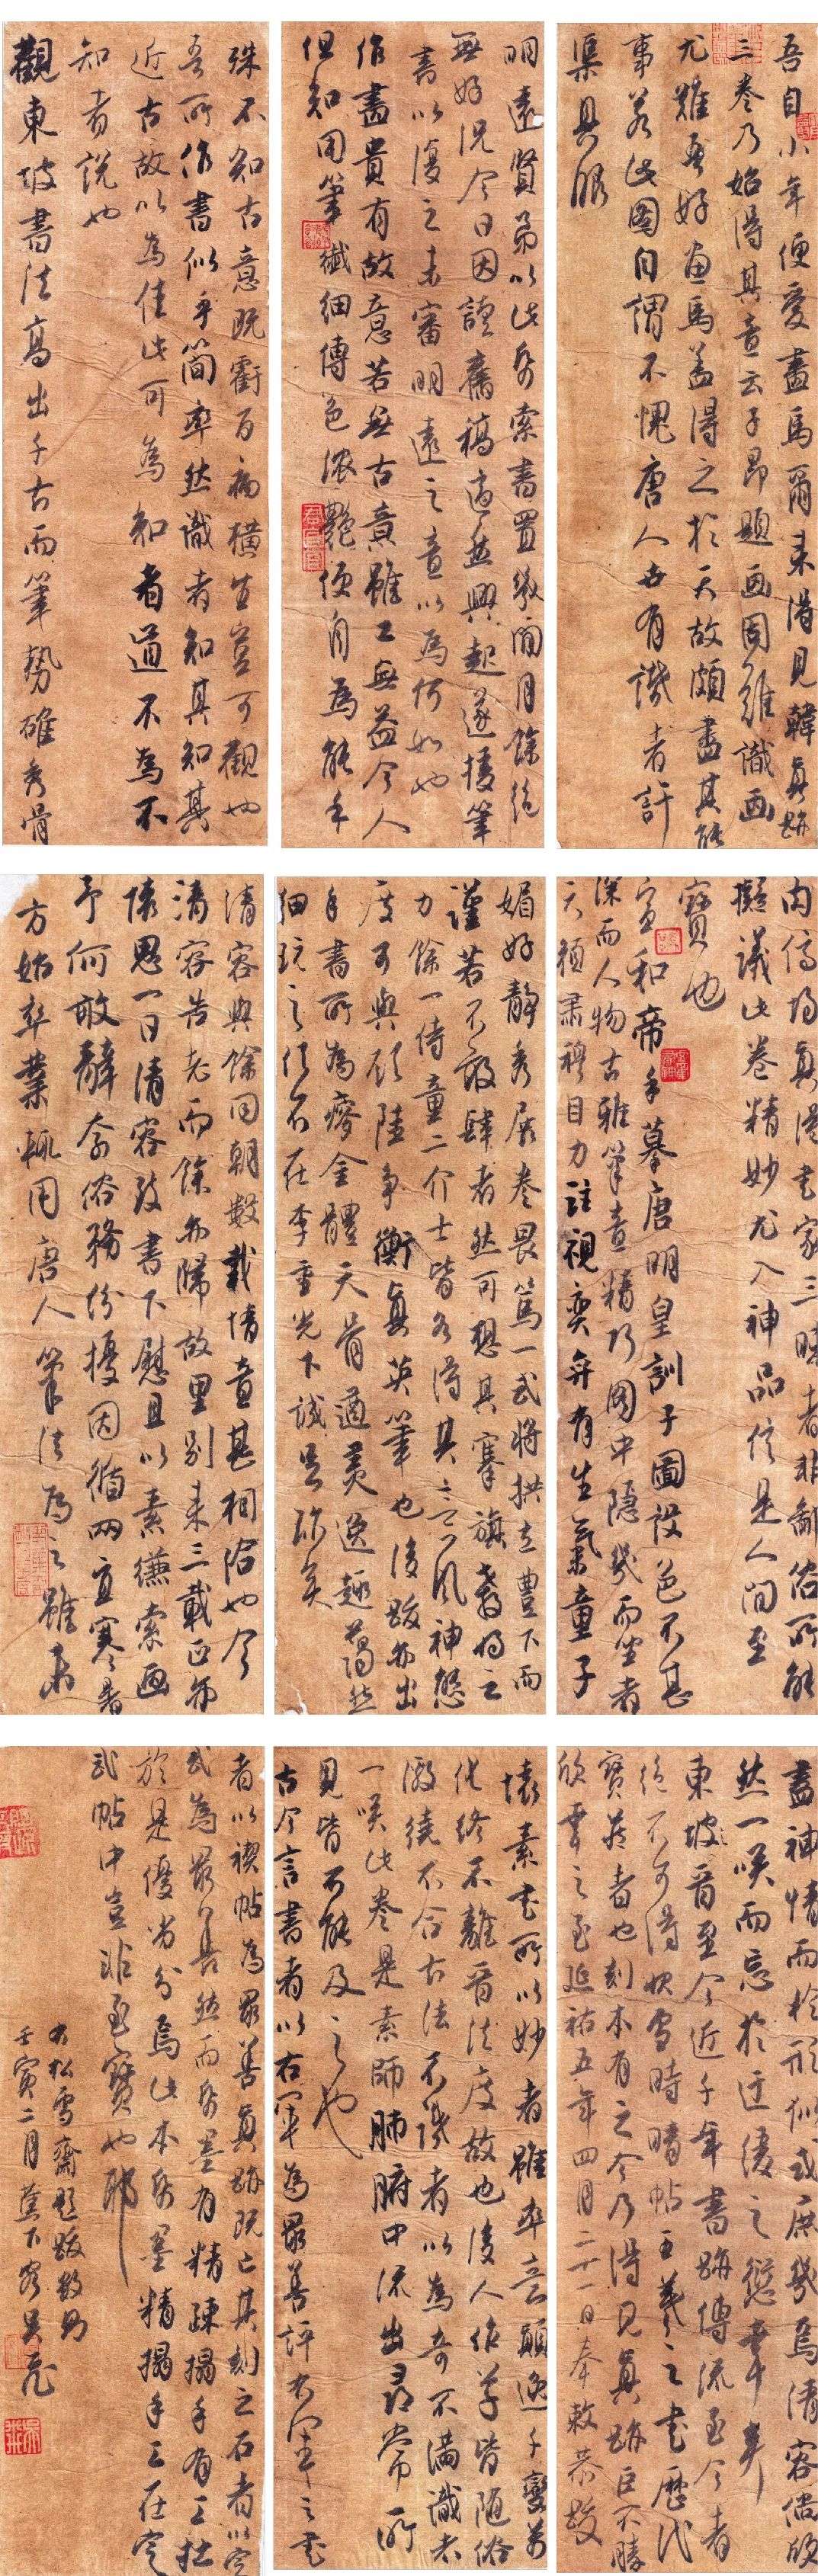 吾自小年便愛畫馬爾来得見韓真跡
三卷乃始得其意云子昂題画固難識画
尤難吾好画馬盖得之於天故頗盡其能
事若此圖自謂不愧唐人世有識者許
渠具眼
明遠賢弟以此紙索書置几間月餘絶
無好況今日因讀舊稿適然興起遂援筆
書以復之未審明遠之意以為何如也
作畫貴有故意若無古意雖工無益今人
但知用筆纖細傅色濃艷便自為能手
殊不知古意既虧百病橫生豈可觀也
吾所作書似乎簡率然識者知其知其
近古故以為佳此可為知者道不為不
知者說也
觀東坡書法高出千古而筆勢雄秀骨
内傳得真漢書家三昧者非鄙俗所能
擬議此卷精妙尤入神品信是人間至
寶也
宣和帝手摹唐明皇訓子圖設色不甚
深而人物古雅筆意精巧圖中隱几而坐者
天顔肅穆目力註視奕奕有生氣童子
媚好靜秀展卷畏篤一武將拱立豊下而
謹若不敢肆者然可想其搴旗
力餘一侍童二介士皆各得其言風神態
度可與顧陸争衡真英筆也後跋亦出
手書所為瘦金體天骨遒美逸趣藹然
細玩之
清容與餘同朝數載情意甚相洽也今
清容告老而餘亦歸故里别来三載正爾
懐思一日清容致書下慰且以素縑索画
予何敢辭奈俗務份擾因循兩宜寒暑
方始卒業輒用唐人筆法為之雖未
盡神情而於形似或庶幾焉清容倘欣
然一咲而忘於迂緩之愆幸
東坡晋至今近千年書跡傳流至今者
絶不可得快雪時晴帖王羲之書歷代
寳蔵者也刻本有之今乃得見真跡臣不勝
欣幸之至延祐五年四月二十一日奉敕恭跋
懐素書所以妙者雖率意顛逸千變萬
化終不離晋法度故也後人作草皆随俗
激繞不合古法不識者以為奇不満識者
一咲此卷是素師肺腑中流出尋常所
見皆不能及之也
古今言書者以右軍為最善評右軍之書
者以禊帖為最善真跡既亡其刻之石者以定
武為最善然而紙墨有精疎搨手有工拙
於是優劣分焉此本紙墨精搨手工在定
武帖中豈非至寶也耶
右松雪齋題跋數則
壬寅二月